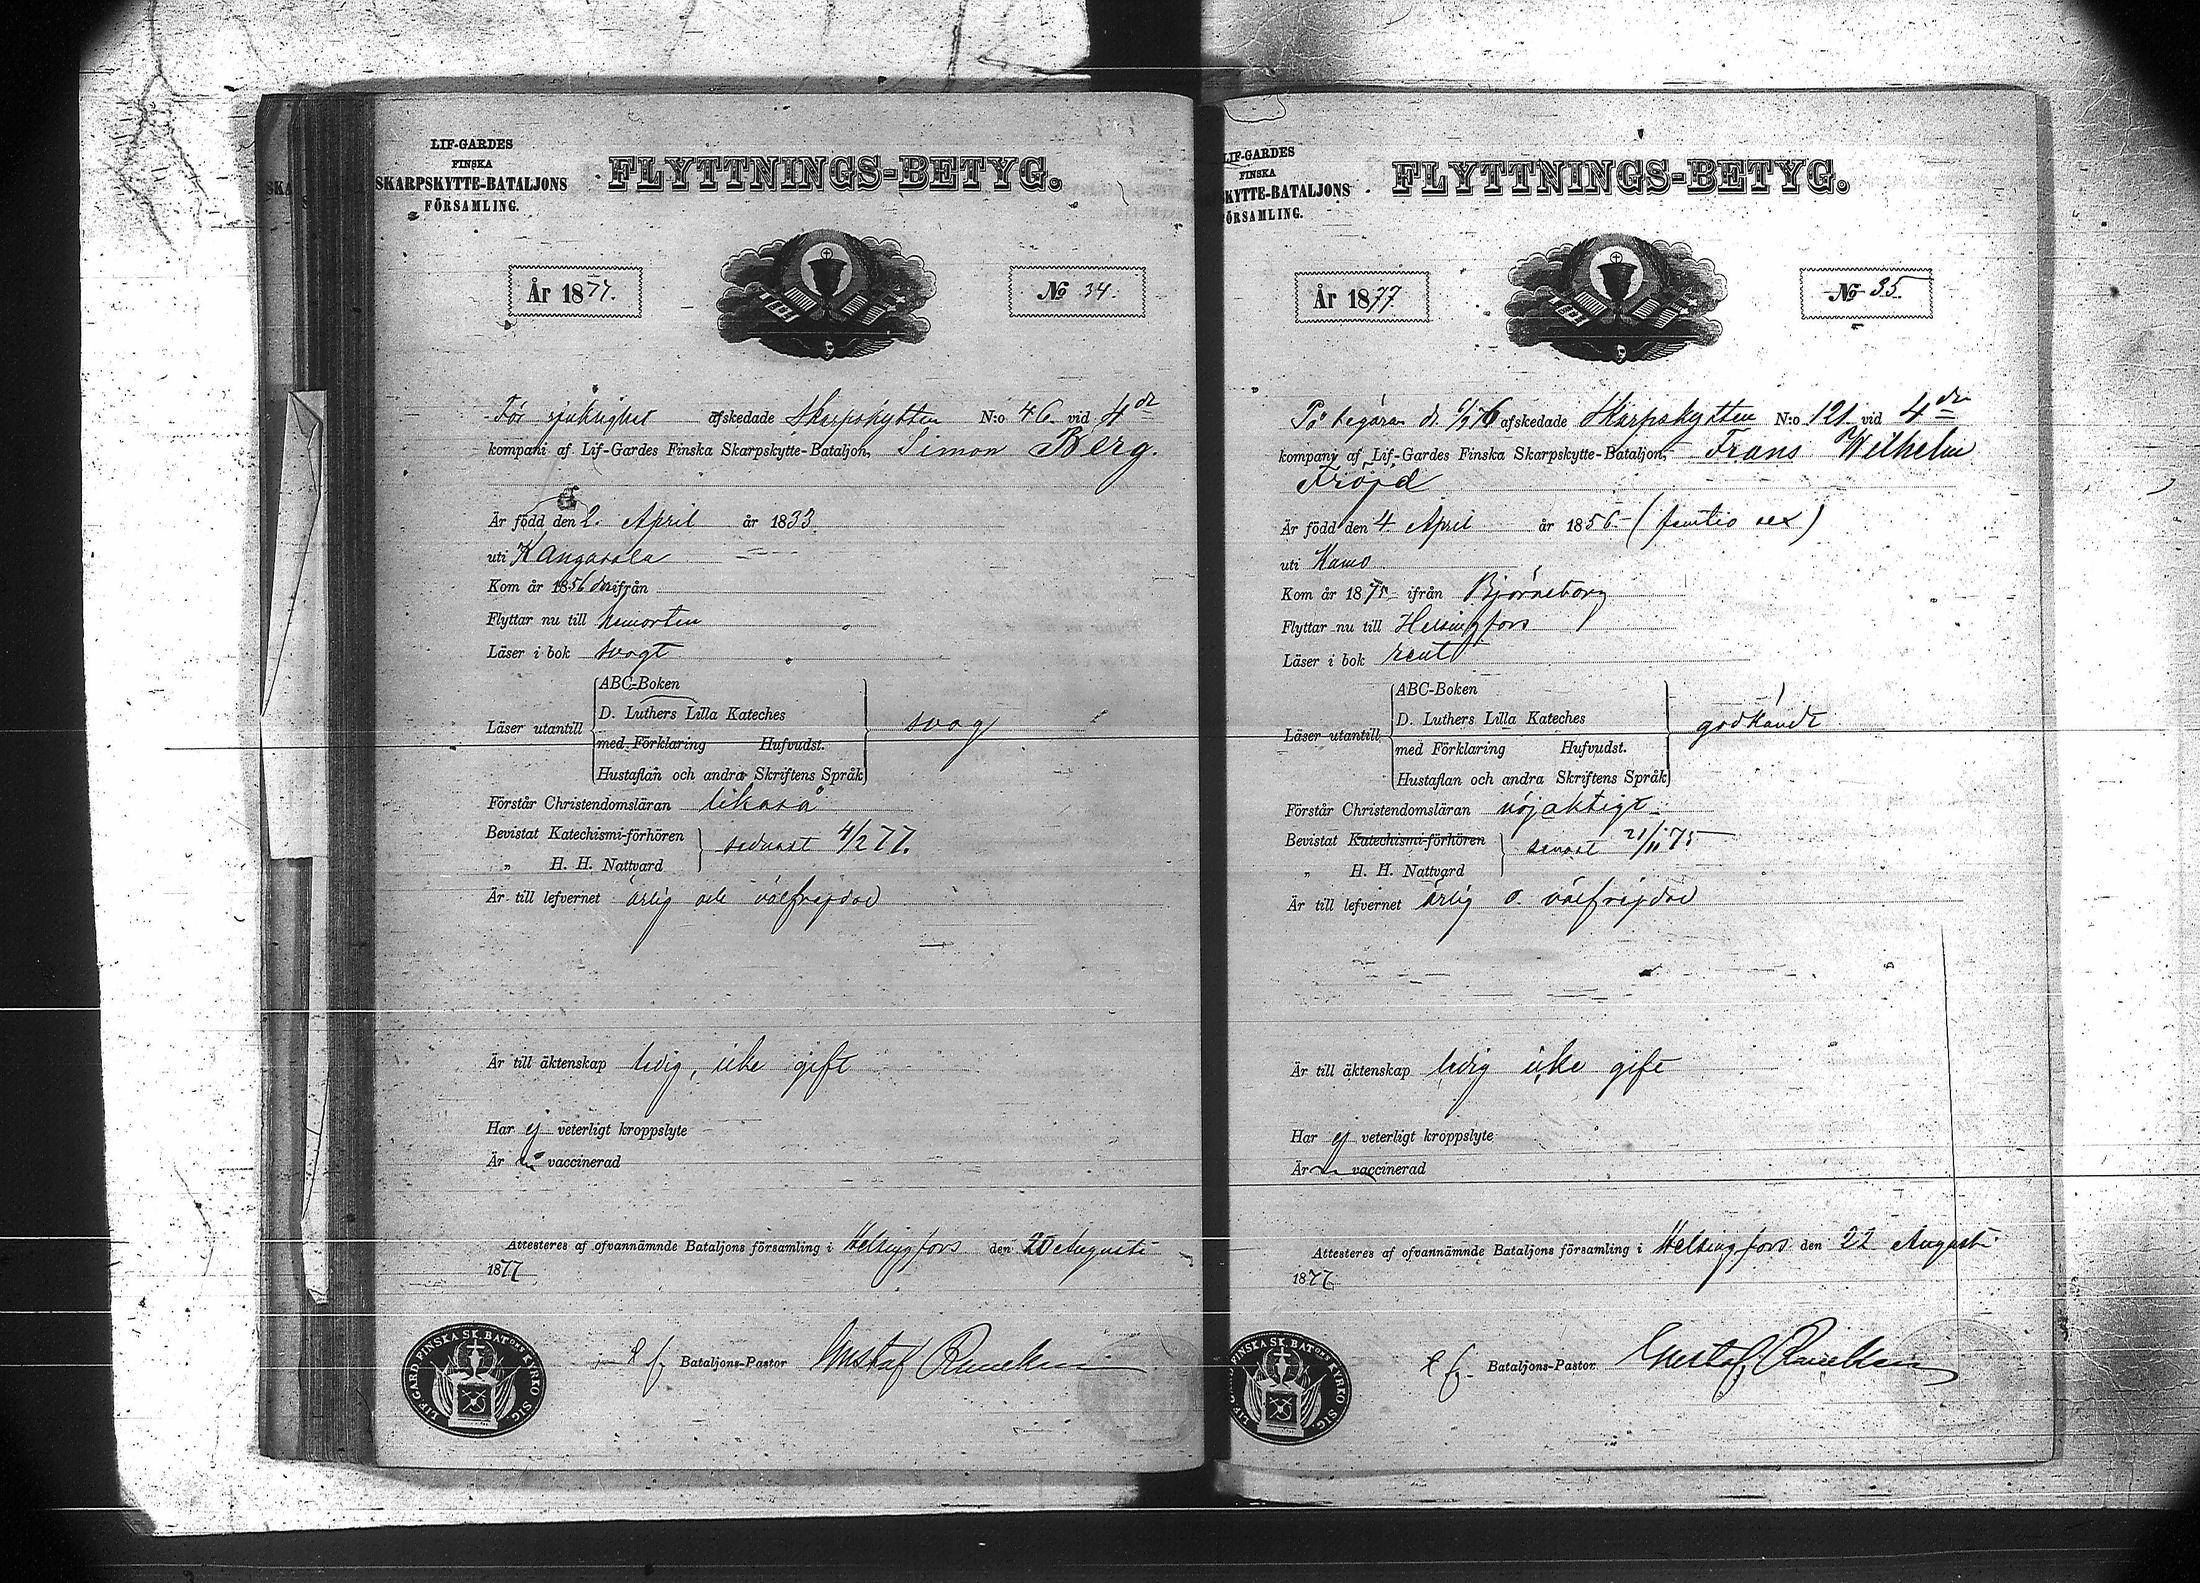 LIF-GARDES
FINSKA
SKARPSKYTTE-BATALJONS
FÖRSAMLING.
FLYTTNINGS-BETYG.
År 1877.
No 34.
För sjuklighet afskedade Skarpskytten N:o 46 vid 4de
kompani af Lif-Gardes Finska Skarpskytte-Bataljon, Simon Berg.
Är född den 2. April år 1833
uti Kangasala
Kom år 1856 ifrån
Flyttar nu till hemorten
Läser i bok svagt
ABC-Boken
D. Luthers Lilla Kateches
Läser utantill svag
med Förklaring Hufvudst.
Hustaflan och andra Skriftens Språk
Förstår Christendomsläran likaså
Bevistat Katechismi-förhören
sednast 4/2 77.
„ H. H. Nattvard
Är till lefvernet ärlig och välfrejdad
Är till äktenskap ledig, icke gift
Har ej veterligt kroppslyte
Är vaccinerad
Attesteres af ofvannämnde Bataljons församling i Helsingfors den 20 Augusti
1877
Bataljons-Pastor Gustaf
LIF. GARD. FINSKA SK. BATONS KYRKO SIG.
LIF-GARDES
FINSKA
SKYTTE-BATALJONS
ÖRSAMLING.
FLYTTNINGS-BETYG.
År 1877
No 35.
På begäran d. afskedade Skarpskytten N:o 121 vid 4de
kompani af Lif-Gardes Finska Skarpskytte-Bataljon, Frans Wilhelm
Fröjd
Är född den 4. April år 1856 - (femtio sex)
uti Kumo
Kom år 1875 ifrån Björneborg
Flyttar nu till Helsingfors
Läser i bok rent
ABC-Boken
D. Luthers Lilla Kateches
Läser utantill godkändt
med Förklaring Hufvudst.
Hustaflan och andra Skriftens Språk
Förstår Christendomsläran nöjaktigt
Bevistat Katechismi-förhören
senast 21/11 75
„ H. H. Nattvard
Är till lefvernet ärlig o. välfrejdad
Är till äktenskap ledig icke gift
Har ej veterligt kroppslyte
Är vaccinerad
Attesteres af ofvannämnde Bataljons församling i Helsingfors den 22 Augusti
1877
Bataljons-Pastor. Gustaf
GARD. FINSKA SK. BATONS KYRKO SIG.